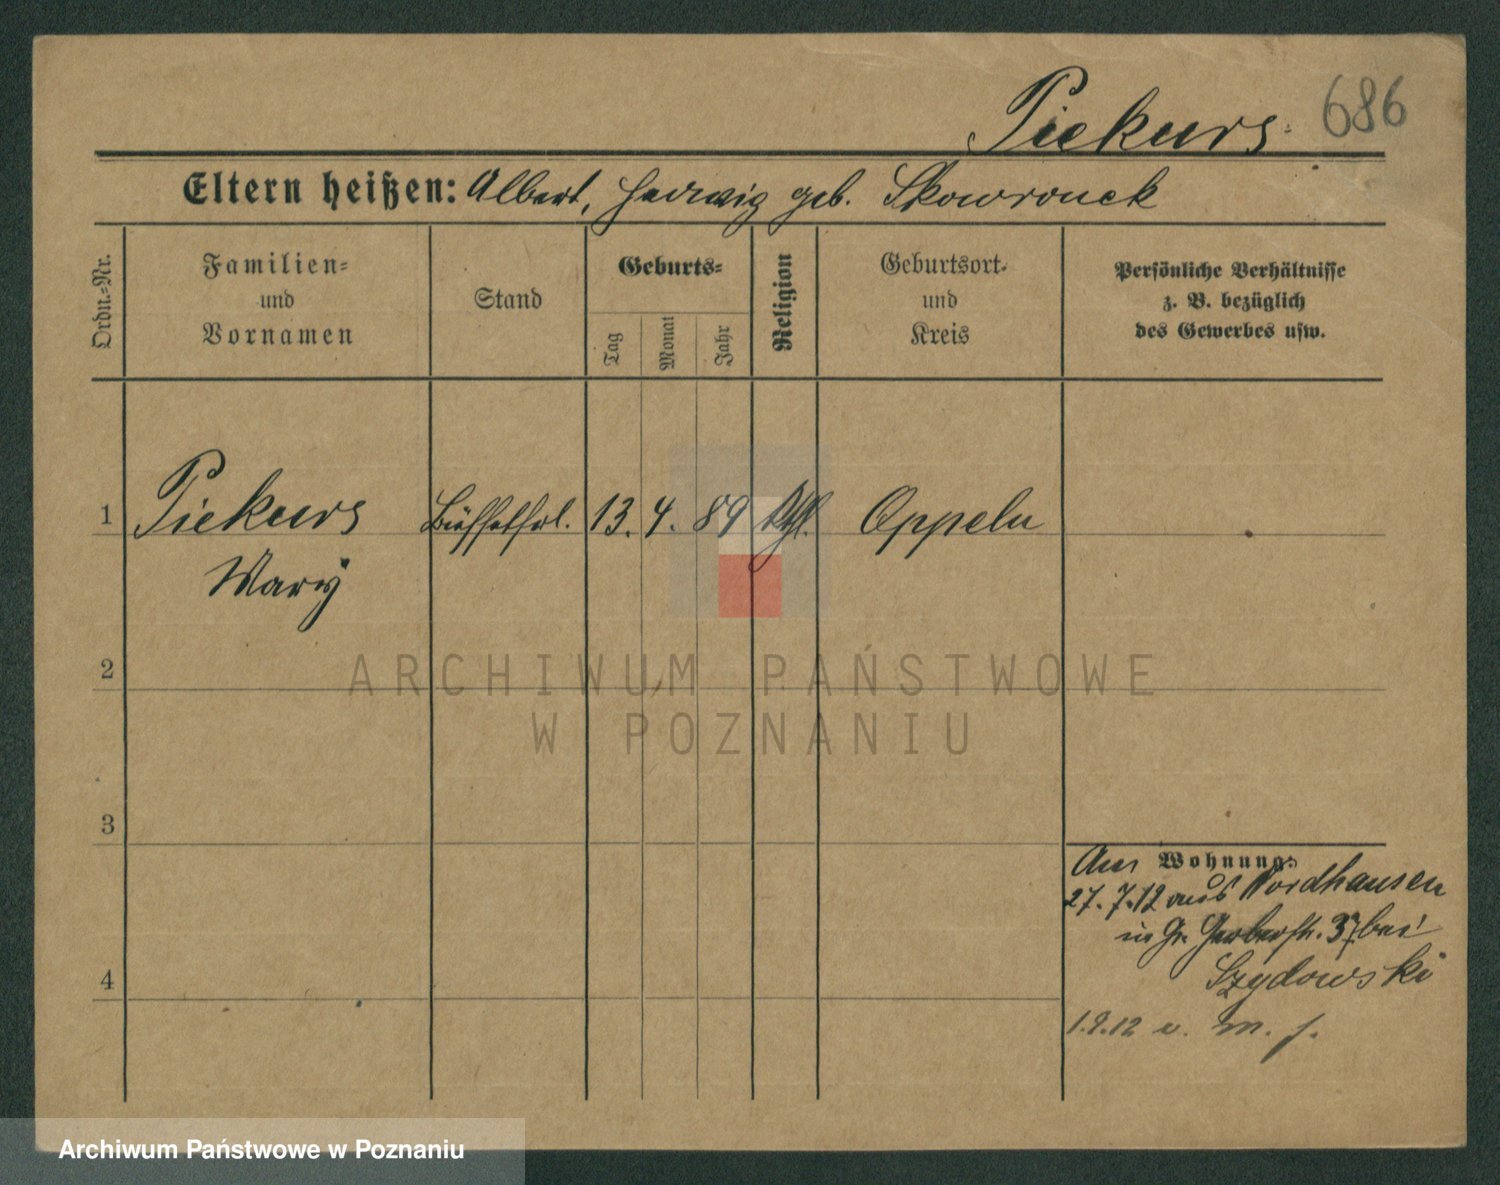 Piekurs
686
Eltern heißen: Albert, Hedwig geb. Skowronek
Ordn.=Nr.
Familien=
und
Vornamen
Stand
Geburts=
Tag
Monat
Jahr
Religion
Geburtsort-
und
Kreis
Persönliche Verhältnisse
z. B. bezüglich
des Gewerbes usw.
1
Piekurs
Büffetfrl.
13. 4. 89
Kth.
Oppeln
Mary
2
ARCHIWUM PAŃSTWOWE
W POZNANIU
3
Wohnung:
Am
27.7.12 aus Nordhausen
in Gr. Gerberstr. 37 bei
Szydowski
4
1.9.12 v. m. f.
Archiwum Państwowe w Poznaniu